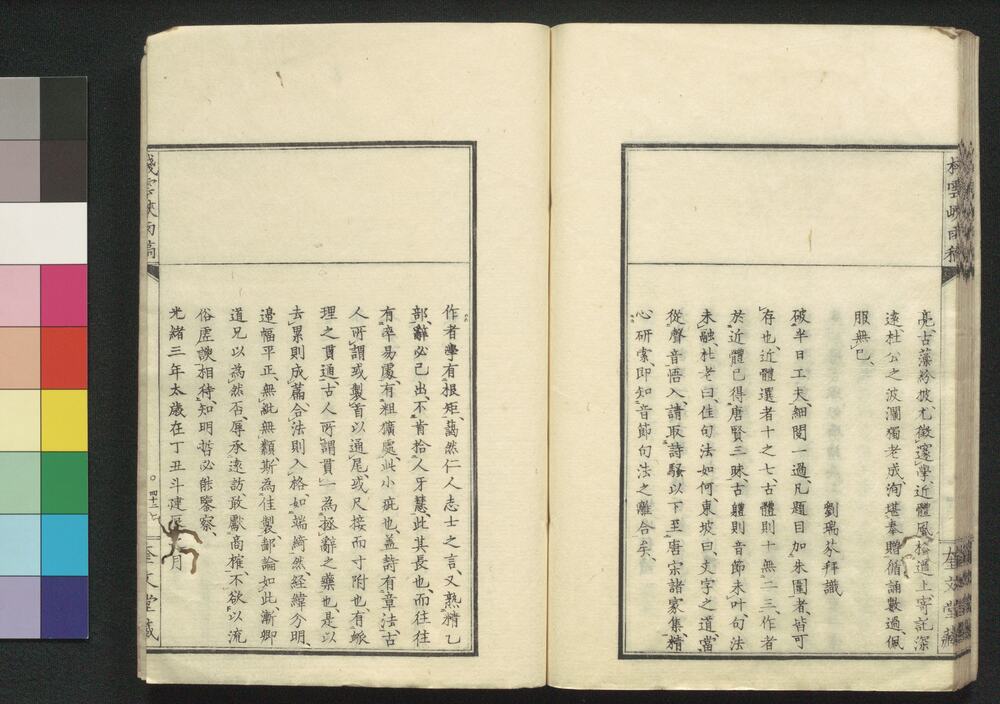 棧雲峽雨稿
奎文堂藏
亮古藻紛披尤徵邃學近體風格遒上寄託深
遠杜公之波瀾獨老成洵堪奉贈循誦數過佩
服無已
劉瑞芬拜識
破半日工夫細閱一過凡題目加朱圍者皆可
存也近體選者十之七古體則十無二三作者
於近體已得唐賢三昧古體則音節未叶句法
未融杜老曰佳句法如何東坡曰文字之道當
從聲音悟入請取詩騷以下至唐宋諸家集精
心研索即知音節句法之離合矣
作者學有根矩藹然仁人志士之言又熟精乙
部辭必己出不肯拾人牙慧此其長也而往往
有率易處有粗獷處此小疵也蓋詩有章法古
人所謂或製首以通尾或尺接而寸附也有脈
理之貫通古人所謂貫一為拯辭之藥也是以
去累則成篇合法則入格如端綺然經緯分明
邊幅平正無紕無纇斯為佳製鄙論如此漸卿
道兄以為然否辱承遠訪敢獻商榷不欲以流
俗虛諛相待知明哲必能鑒察
光緒三年太歲在丁丑斗建 月
棧雲峽雨稿
四十二
奎文堂藏